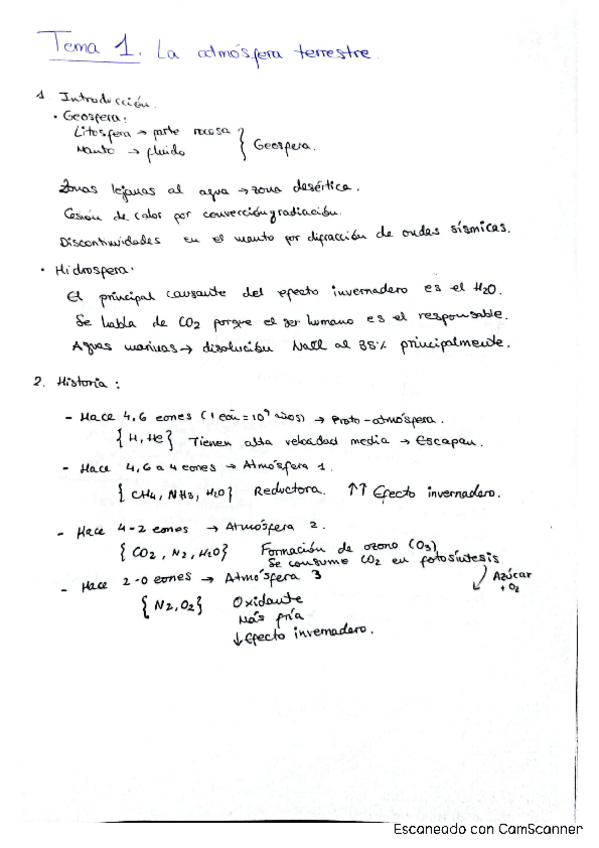 Tema 1. La atmósfera terrestre.
1 Introducción.
• Geosfera:
Litosfera → parte rocosa
Manto → fluido
} Geosfera.
Zonas lejanas al agua → zona desértica.
Cesión de calor por convección y radiación.
Discontinuidades en el manto por difracción de ondas sísmicas.
• Hidrosfera.
El principal causante del efecto invernadero es el H2O.
Se habla de CO2 porque el ser humano es el responsable.
Aguas marinas → disolución NaCl al 35% principalmente.
2. Historia :
- Hace 4,6 eones (1 eón = 10⁹ años) → Proto-atmósfera.
{H, He} Tienen alta velocidad media → Escapan.
- Hace 4,6 a 4 eones → Atmósfera 1.
{CH4, NH3, H2O} Reductora. ↑↑ Efecto invernadero.
- Hace 4-2 eones → Atmósfera 2.
{CO2, N2, H2O} Formación de ozono (O3)
Se consume CO2 en fotosíntesis
Azúcar + O2
- Hace 2-0 eones → Atmósfera 3
{N2, O2} Oxidante
Más fría
↓ Efecto invernadero.
Escaneado con CamScanner